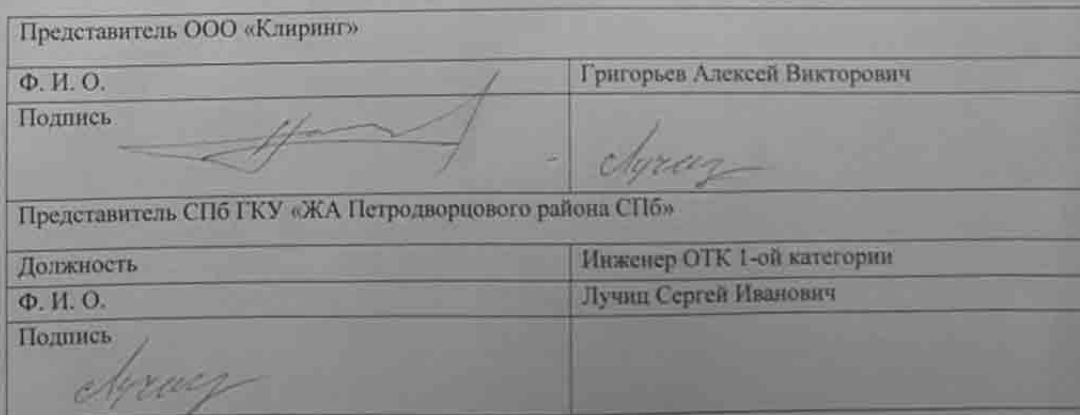 Представитель ООО «Клиринг»
Ф. И. О. Григорьев Алексей Викторович
Подпись
Лучиц
Представитель СПб ГКУ «ЖА Петродворцового района СПб»
Должность Инженер ОТК 1-ой категории
Ф. И. О. Лучиц Сергей Иванович
Подпись
Лучиц